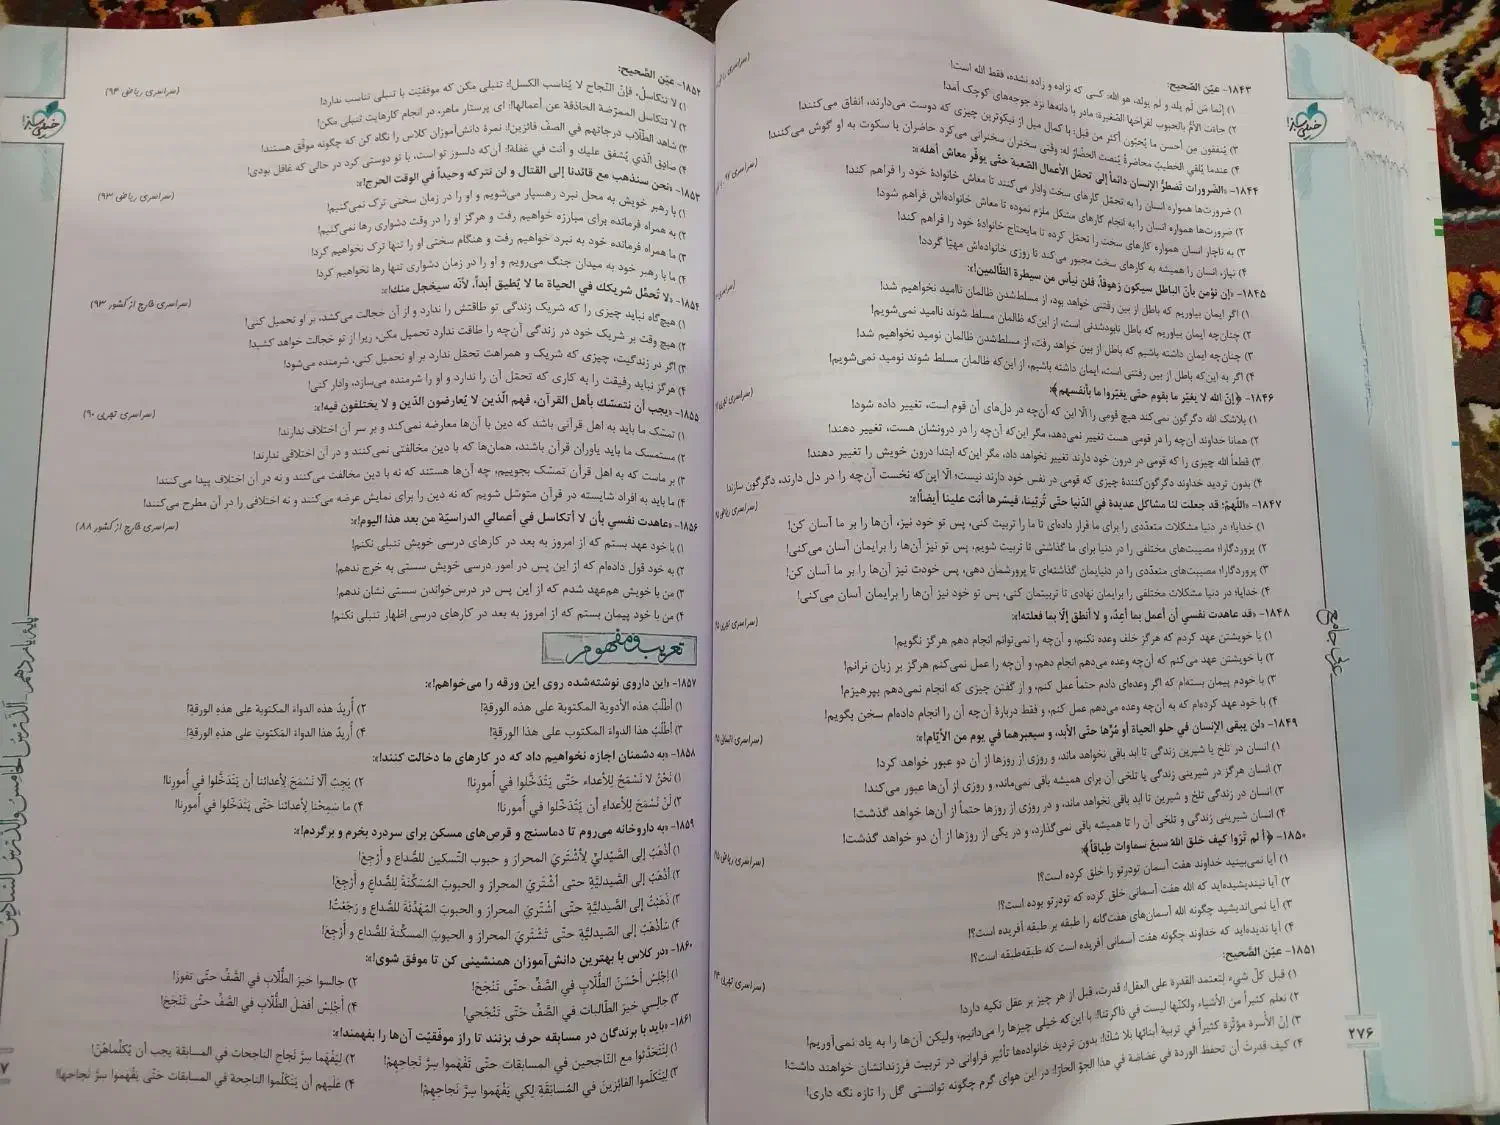 ۱۸۴۳- عیّن الصّحیح:
۱) إنّما مَن لَم یلد و لم یولد، هو الله: کسی که نزاده و زاده نشده، فقط الله است!
۲) جاءت الأمّ بالحبوب لفراخها الصّغیرة: مادر با دانه‌ها نزد جوجه‌های کوچک آمد!
۳) ینفقون مِن أحسن ما یُحبّون أکثر من قبل: با کمال میل از نیکوترین چیزی که دوست می‌دارند، انفاق می‌کنند!
۴) عندما یُلقي الخطیبُ محاضرةً یُنصت الحضّارُ له: وقتی سخنران سخنرانی می‌کرد حاضران با سکوت به او گوش می‌کنند!
۱۸۴۴- «الضّرورات تَضطرُّ الإنسان دائماً إلی تحمّل الأعمال الصّعبة حتّی یوفّر معاش أهله»:
۱) ضرورت‌ها همواره انسان را به تحمّل کارهای سخت وادار می‌کنند تا معاش خانوادهٔ خود را فراهم کند!
۲) ضرورت‌ها همواره انسان را به انجام کارهای مشکل ملزم نموده تا معاش خانواده‌اش فراهم شود!
۳) به ناچار انسان همواره کارهای سخت را تحمّل کرده تا مایحتاج خانوادهٔ خود را فراهم کند!
۴) نیاز، انسان را همیشه به کارهای سخت مجبور می‌کند تا روزی خانواده‌اش مهیّا گردد!
۱۸۴۵- «إن نؤمن بأنّ الباطل سیکون زهوقاً، فلن نیأس من سیطرة الظّالمین!»:
۱) اگر ایمان بیاوریم که باطل از بین رفتنی خواهد بود، از مسلط‌شدن ظالمان ناامید نخواهیم شد!
۲) چنان‌چه ایمان بیاوریم که باطل نابودشدنی است، از این‌که ظالمان مسلط شوند ناامید نمی‌شویم!
۳) چنان‌چه ایمان داشته باشیم که باطل از بین خواهد رفت، از مسلط‌شدن ظالمان نومید نخواهیم شد!
۴) اگر به این‌که باطل از بین رفتنی است، ایمان داشته باشیم، از این‌که ظالمان مسلط شوند نومید نمی‌شویم!
۱۸۴۶- ﴿إنّ الله لا یغیّر ما بقوم حتّی یغیّروا ما بأنفسهم﴾:
۱) بلاشک الله دگرگون نمی‌کند هیچ قومی را الّا این که آن‌چه در دل‌های آن قوم است، تغییر داده شود!
۲) همانا خداوند آن‌چه را در قومی هست تغییر نمی‌دهد، مگر این‌که آن‌چه را در درونشان هست، تغییر دهند!
۳) قطعاً الله چیزی را که قومی در درون خود دارند تغییر نخواهد داد، مگر این‌که ابتدا درون خویش را تغییر دهند!
۴) بدون تردید خداوند دگرگون‌کنندهٔ چیزی که قومی در نفس خود دارند نیست؛ الّا این‌که نخست آن‌چه را در دل دارند، دگرگون سازند!
۱۸۴۷- «اللّهمّ؛ قد جعلت لنا مشاکل عدیدة في الدّنیا حتّی تُربّینا، فیسّرها أنت علینا أیضاً!»:
۱) خدایا؛ در دنیا مشکلات متعدّدی را برای ما قرار داده‌ای تا ما را تربیت کنی، پس تو خود نیز، آن‌ها را بر ما آسان کن!
۲) پروردگارا؛ مصیبت‌های مختلفی را در دنیا برای ما گذاشتی تا تربیت شویم، پس تو نیز آن‌ها را برایمان آسان می‌کنی!
۳) پروردگارا؛ مصیبت‌های متعدّدی را در دنیایمان گذاشته‌ای تا پرورشمان دهی، پس خودت نیز آن‌ها را بر ما آسان کن!
۴) خدایا؛ در دنیا مشکلات مختلفی را برایمان نهادی تا تربیتمان کنی، پس تو خود نیز آن‌ها را برایمان آسان می‌کنی!
۱۸۴۸- «قد عاهدت نفسي أن أعمل بما أعِدُ، و لا أنطق إلّا بما فعلته!»:
۱) با خویشتن عهد کردم که هرگز خلف وعده نکنم، و آن‌چه را نمی‌توانم انجام دهم هرگز نگویم!
۲) با خویشتن عهد می‌کنم که آن‌چه وعده می‌دهم انجام دهم، و آن‌چه را عمل نمی‌کنم هرگز بر زبان نرانم!
۳) با خودم پیمان بسته‌ام که اگر وعده‌ای دادم حتماً عمل کنم، و از گفتن چیزی که انجام نمی‌دهم بپرهیزم!
۴) با خود عهد کرده‌ام که به آن‌چه وعده می‌دهم عمل کنم، و فقط دربارهٔ آن‌چه آن را انجام داده‌ام سخن بگویم!
۱۸۴۹- «لن یبقی الإنسان في حلو الحیاة أو مُرّها حتّی الأبد، و سیعبرهما في یوم من الأیّام!»:
۱) انسان در تلخ یا شیرین زندگی تا ابد باقی نخواهد ماند، و روزی از روزها از آن دو عبور خواهد کرد!
۲) انسان هرگز در شیرینی زندگی یا تلخی آن برای همیشه باقی نمی‌ماند، و روزی از آن‌ها عبور می‌کند!
۳) انسان در زندگی تلخ و شیرین تا ابد باقی نخواهد ماند، و در روزی از روزها حتماً از آن‌ها خواهد گذشت!
۴) انسان شیرینی زندگی و تلخی آن را تا همیشه باقی نمی‌گذارد، و در یکی از روزها از آن دو خواهد گذشت!
۱۸۵۰- ﴿أ لم تَرَوا کیف خلق اللهُ سبعَ سماوات طِباقاً﴾:
۱) آیا نمی‌بینید خداوند هفت آسمان تودرتو را خلق کرده است؟!
۲) آیا نیندیشیده‌اید که الله هفت آسمانی خلق کرده که تودرتو بوده است؟!
۳) آیا نمی‌اندیشید چگونه الله آسمان‌های هفت‌گانه را طبقه بر طبقه آفریده است؟!
۴) آیا ندیده‌اید که خداوند چگونه هفت آسمانی آفریده است که طبقه‌طبقه است؟!
۱۸۵۱- عیّن الصّحیح:
۱) قبل کلّ شيء لِتعتمد القدرة علی العقل!: قدرت، قبل از هر چیز بر عقل تکیه دارد!
۲) نعلم کثیراً من الأشیاء ولکنّها لیست في ذاکرتنا!: با این‌که خیلی چیزها را می‌دانیم، ولیکن آن‌ها را به یاد نمی‌آوریم!
۳) إنّ الأُسرة مؤثّرة کثیراً في تربیة أبنائها بلا شکّ!: بدون تردید خانواده‌ها تأثیر فراوانی در تربیت فرزندانشان خواهند داشت!
۴) کیف قدرتَ أن تحفظ الوردة في غضاضة في هذا الجوّ الحارّ!: در این هوای گرم چگونه توانستی گل را تازه نگه داری!
۲۷۶
عربی جامع
خیلی سبز
۱۸۵۲- عیّن الصّحیح:
(سراسری ریاضی ۹۴)
۱) لا تتکاسل، فإنّ النّجاح لا یُناسب الکسل!: تنبلی مکن که موفقیّت با تنبلی تناسب ندارد!
۲) لا تتکاسل الممرّضة الحاذقة عن أعمالها!: ای پرستار ماهر، در انجام کارهایت تنبلی مکن!
۳) شاهد الطّلّاب درجاتهم في الصفّ فائزین!: نمرهٔ دانش‌آموزان کلاس را نگاه کن که چگونه موفّق هستند!
۴) صادِق الّذي یُشفق علیك و أنت في غفلة!: آن‌که دلسوز تو است، با تو دوستی کرد در حالی که غافل بودی!
۱۸۵۳- «نحن سنذهب مع قائدنا إلی القتال و لن نترکه وحیداً في الوقت الحرج!»:
(سراسری ریاضی ۹۳)
۱) با رهبر خویش به محل نبرد رهسپار می‌شویم و او را در زمان سختی ترک نمی‌کنیم!
۲) به همراه فرمانده برای مبارزه خواهیم رفت و هرگز او را در وقت دشواری رها نمی‌کنیم!
۳) ما همراه فرمانده خود به نبرد خواهیم رفت و هنگام سختی او را تنها ترک نخواهیم کرد!
۴) ما با رهبر خود به میدان جنگ می‌رویم و او را در زمان دشواری تنها رها نخواهیم کرد!
۱۸۵۴- «لا تُحمّل شریکك في الحیاة ما لا یُطیق أبداً، لأنّه سیخجل منك!»:
(سراسری خارج از کشور ۹۳)
۱) هیچ‌گاه نباید چیزی را که شریک زندگی تو طاقتش را ندارد و از آن خجالت می‌کشد، بر او تحمیل کنی!
۲) هیچ وقت بر شریک خود در زندگی آن‌چه را طاقت ندارد تحمیل مکن، زیرا از تو خجالت خواهد کشید!
۳) اگر در زندگیت، چیزی که شریک و همراهت تحمّل ندارد بر او تحمیل کنی، شرمنده می‌شود!
۴) هرگز نباید رفیقت را به کاری که تحمّل آن را ندارد و او را شرمنده می‌سازد، وادار کنی!
۱۸۵۵- «یجب أن نتمسّك بأهل القرآن، فهم الّذین لا یُعارضون الدّین و لا یختلفون فیه!»:
(سراسری تجربی ۹۰)
۱) تمسّک ما باید به اهل قرآنی باشد که دین با آن‌ها معارضه نمی‌کند و بر سر آن اختلاف ندارند!
۲) مستمسک ما باید یاوران قرآن باشند، همان‌ها که با دین مخالفتی نمی‌کنند و در آن اختلافی ندارند!
۳) بر ماست که به اهل قرآن تمسّک بجوییم، چه آن‌ها هستند که نه با دین مخالفت می‌کنند و نه در آن اختلاف پیدا می‌کنند!
۴) ما باید به افراد شایسته در قرآن متوسّل شویم که نه دین را برای نمایش عرضه می‌کنند و نه اختلافی را در آن مطرح می‌کنند!
۱۸۵۶- «عاهدت نفسي بأن لا أتکاسل في أعمالي الدراسیّة من بعد هذا الیوم!»:
(سراسری خارج از کشور ۸۸)
۱) با خود عهد بستم که از امروز به بعد در کارهای درسی خویش تنبلی نکنم!
۲) به خود قول داده‌ام که از این پس در امور درسی خویش سستی به خرج ندهم!
۳) من با خویش هم‌عهد شدم که از این پس در درس‌خواندن سستی نشان ندهم!
۴) من با خود پیمان بستم که از امروز به بعد در کارهای درسی اظهار تنبلی نکنم!
تعریب و مفهوم
۱۸۵۷- «این داروی نوشته‌شده روی این ورقه را می‌خواهم!»:
۱) أَطلُبُ هذه الأدویة المکتوبة علی هذه الورقةِ!
۲) أُریدُ هذه الدواءَ المکتوبة علی هذهِ الورقةِ!
۳) أَطلُبُ هذا الدواءَ المکتوب علی هذا الورقةِ!
۴) أُریدُ هذا الدواءَ المَکتوبَ علی هذهِ الورقةِ!
۱۸۵۸- «به دشمنان اجازه نخواهیم داد که در کارهای ما دخالت کنند!»:
۱) نَحْنُ لا نَسْمَحُ للأعداء حتّی یَتَدَخَّلوا في أُمورِنا!
۲) یَجِبُ ألّا نَسْمَحَ لِأعدائنا أن یَتَدَخَّلوا في أُمورِنا!
۳) لَنْ نَسْمَحَ لِلأعداءِ أن یَتَدَخّلوا في أُمورنا!
۴) ما سَمِحْنا لِأعدائنا حَتّی یَتَدَخَّلوا في أُمورنا!
۱۸۵۹- «به داروخانه می‌روم تا دماسنج و قرص‌های مسکن برای سردرد بخرم و برگردم!»:
۱) أذْهَبُ إلی الصَّیدليِّ لِأَشْتَريَ المحرارَ و حبوب التّسکین للصُّداع و أَرْجِعَ!
۲) أَذْهَبُ إلی الصَّیدلیَّةِ حتی أشْتَريَ المحرارَ و الحبوبَ المُسَکِّنةَ لِلصُّداعِ و أَرْجِعَ!
۳) ذَهَبْتُ إلی الصَّیدلیَّةِ حتّی أشْتَريَ المحرارَ و الحبوبَ المُهَدِّئَةَ للصُّداعِ و رَجَعْتُ!
۴) سَأذْهَبُ إلی الصّیدلیَّةِ حتّی تَشْتَريَ المحرارَ و الحبوبَ المسکّنةَ للصُّداعِ و أَرْجِعَ!
۱۸۶۰- «در کلاس با بهترین دانش‌آموزان همنشینی کن تا موفق شوی!»:
۱) اِجْلِسْ أحْسَنَ الطُّلّابِ في الصَّفِّ حتّی تَنْجَحَ!
۲) جالسوا خیرَ الطُّلّابِ في الصَّفِّ حتّی تفوز!
۳) جالِسي خیرَ الطّالباتِ في الصَّفِّ حَتّی تَنْجَحي!
۴) أَجْلِسْ أفضلَ الطُّلّابِ في الصَّفِّ حتّی تَنْجَحَ!
۱۸۶۱- «باید با برندگان در مسابقه حرف بزنند تا راز موفّقیّت آن‌ها را بفهمند!»:
۱) لِتَتَحَدَّثوا مع النّاجحین في المسابقاتِ حتّی تَفْهَموا سِرَّ نَجاحِهِمْ!
۲) لِیَفْهَما سِرَّ نَجاح الناجحات في المسابقة یجب أن یُکَلِّماهُنَّ!
لِیَتَکَلّموا الفائزینَ في المُسابَقَةِ لِکي یَفْهَموا سِرَّ نَجاحِهِمْ!
۴) عَلَیهِم أن یَتَکَلَّموا الناجحة في المسابقات حَتّی یَفْهَموا سِرَّ نَجاحها!
پایهٔ یازدهم - الدّرس الخامس و الدّرس السّادس
خیلی سبز